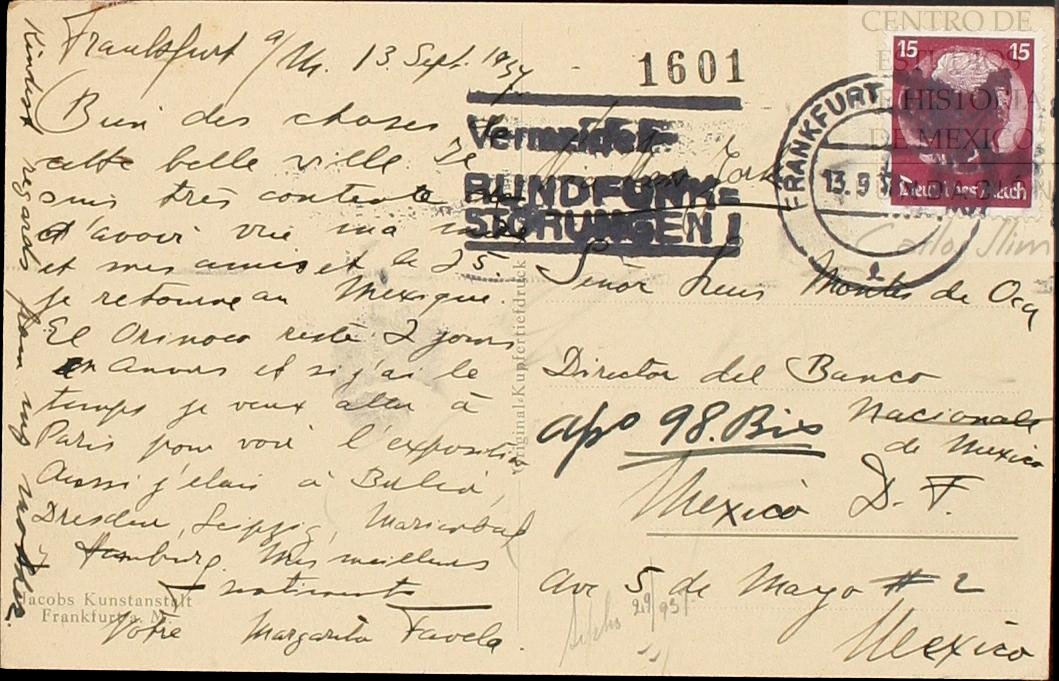 Frankfurt a/M. 13. Sept. 1937
Bien des choses de
cette belle ville. Je
suis très contente
d'avoir vue ma mère
et mes amis et le 25.
je retourne au Mexique.
El Orinoco reste 2 jours
en Anvers et si j'ai le
temps je veux aller à
Paris pour voir l'exposition
Aussi j'étais à Berlin,
Dresden, Leipzig, Marienbad
y Hamburg. Mes meilleurs
sentiments
Votre Margarita Favela.
Kindest regards from my mother.
Jacobs Kunstanstalt
Frankfurt a. M.
Original-Kupfertiefdruck
1601
Vermeidet
RUNDFUNK=
STÖRUNGEN!
FRANKFURT
13.9.3
15 15
Deutsches Reich
CENTRO DE
ESTUDIOS
DE HISTORIA
DE MEXICO
FUNDACIÓN
Carlos Slim
Via New York
Señor Luis Montes de Oca
Director del Banco
Nacional
de Mexico
apo 98. Bis
Mexico D. F.
Ave 5 de Mayo # 2
Mexico